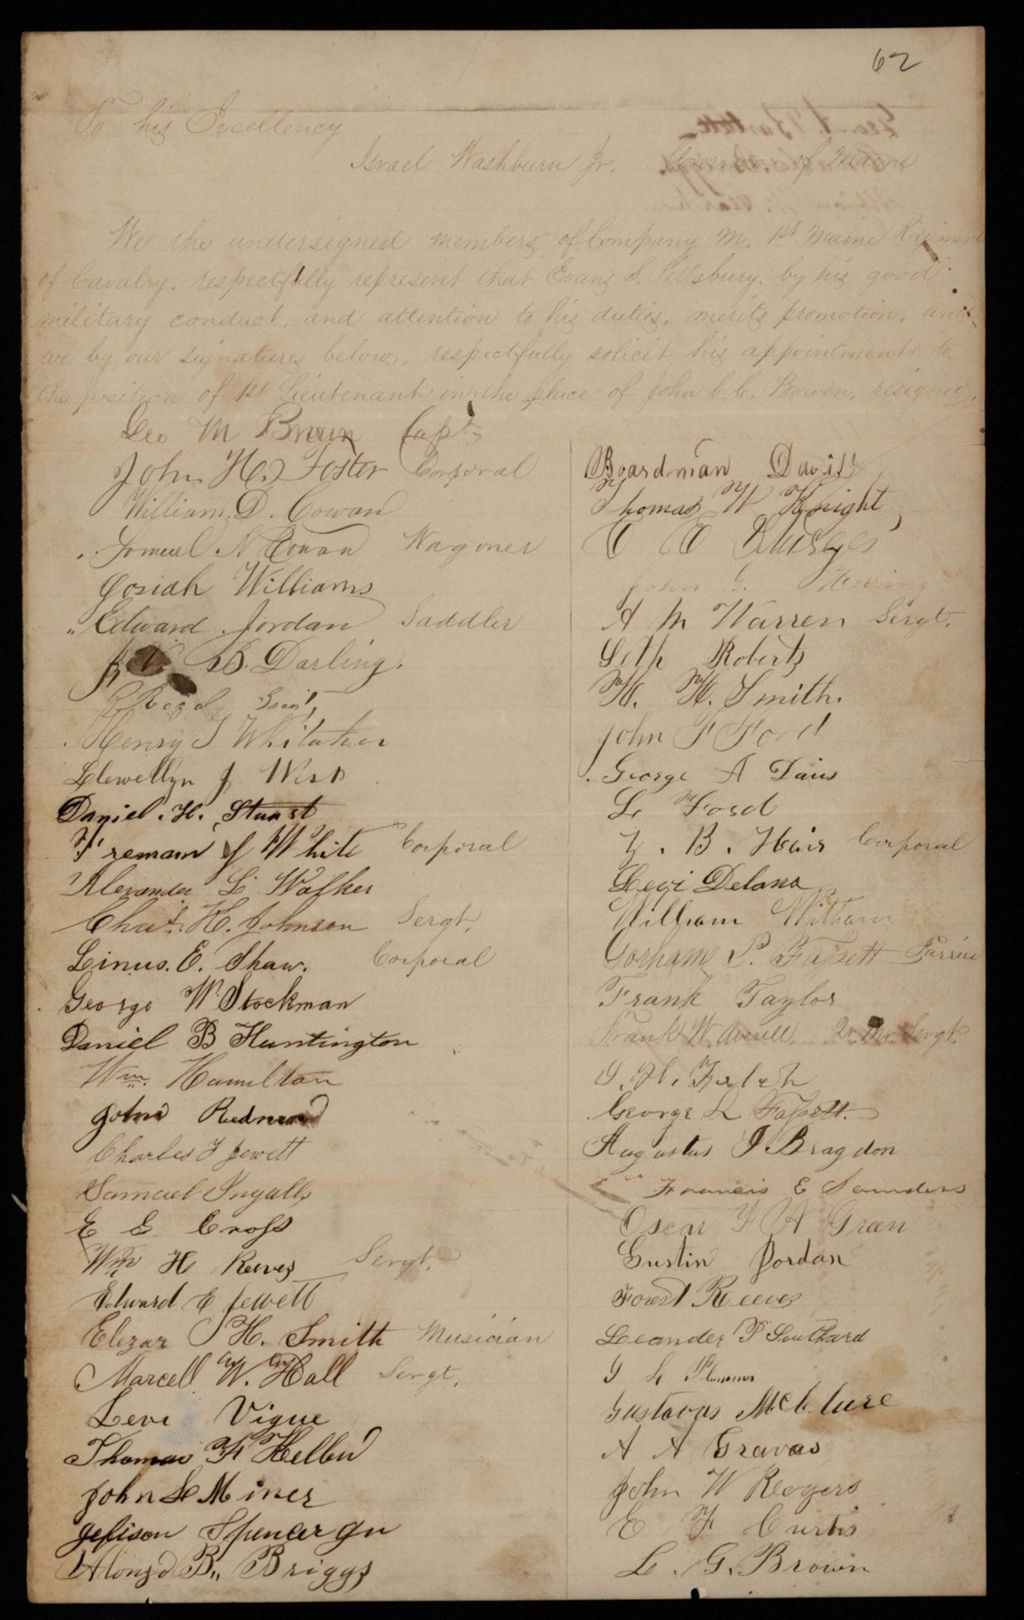 62
To his Excellency
Israel Washburn Jr. Governor of Maine
We the undersigned members of Company M. 1st Maine Regiment
of Cavalry, respectfully represent that Evans S. Pillsbury, by his good
military conduct, and attention to his duties, merits promotion, and
we by our signatures below, respectfully solicit his appointment to
the position of 1st Lieutenant in the place of John C. C. Bowen, resigned,
Geo M Brown Capt
John H. Foster Corporal
William D. Cowan
N Cowan Wagoner
Josiah Williams
Edward Jordan Saddler
B. Darling.
Henry S Whitaker
Llewellyn J West
Daniel. H. Stuart
Freeman J White Corporal
Alexander L Walker
Chas. K. Johnson Sergt.
Linus. E. Shaw. Corporal
George W Stockman
Daniel B Huntington
Wm. Hamilton
John Redmond
Charles F Jewett
Samuel Ingalls
E E Cross
Wm H Reeves Sergt.
Edward E Jewett
Elezar H. Smith Musician
Marcell W. Hall Sergt.
Levi Vigue
Thomas F
John L Miner
Jefison Spencer Jn
Alonzo B,, Briggs
Boardman Davis
Thomas W Knight
C C Burges
John G.
A M Warren Sergt.
Seth Roberts
H. H. Smith.
John F Ford
George A Davis
L Ford
B. Hair Corporal
Levi Delano
William
P. Fassett Farrier
Frank Taylor
Frank W. Averill Qr. Mr. Sergt.
George L Fassett.
Augustus J Bragdon
Francis E Saunders
Oscar F A Green
Gustin Jordan
Forest Reeves
Leander P Southard
L Plummer
Gustavus McClure
A A Graves
John W Rogers
E F Curtis
L. G. Brown